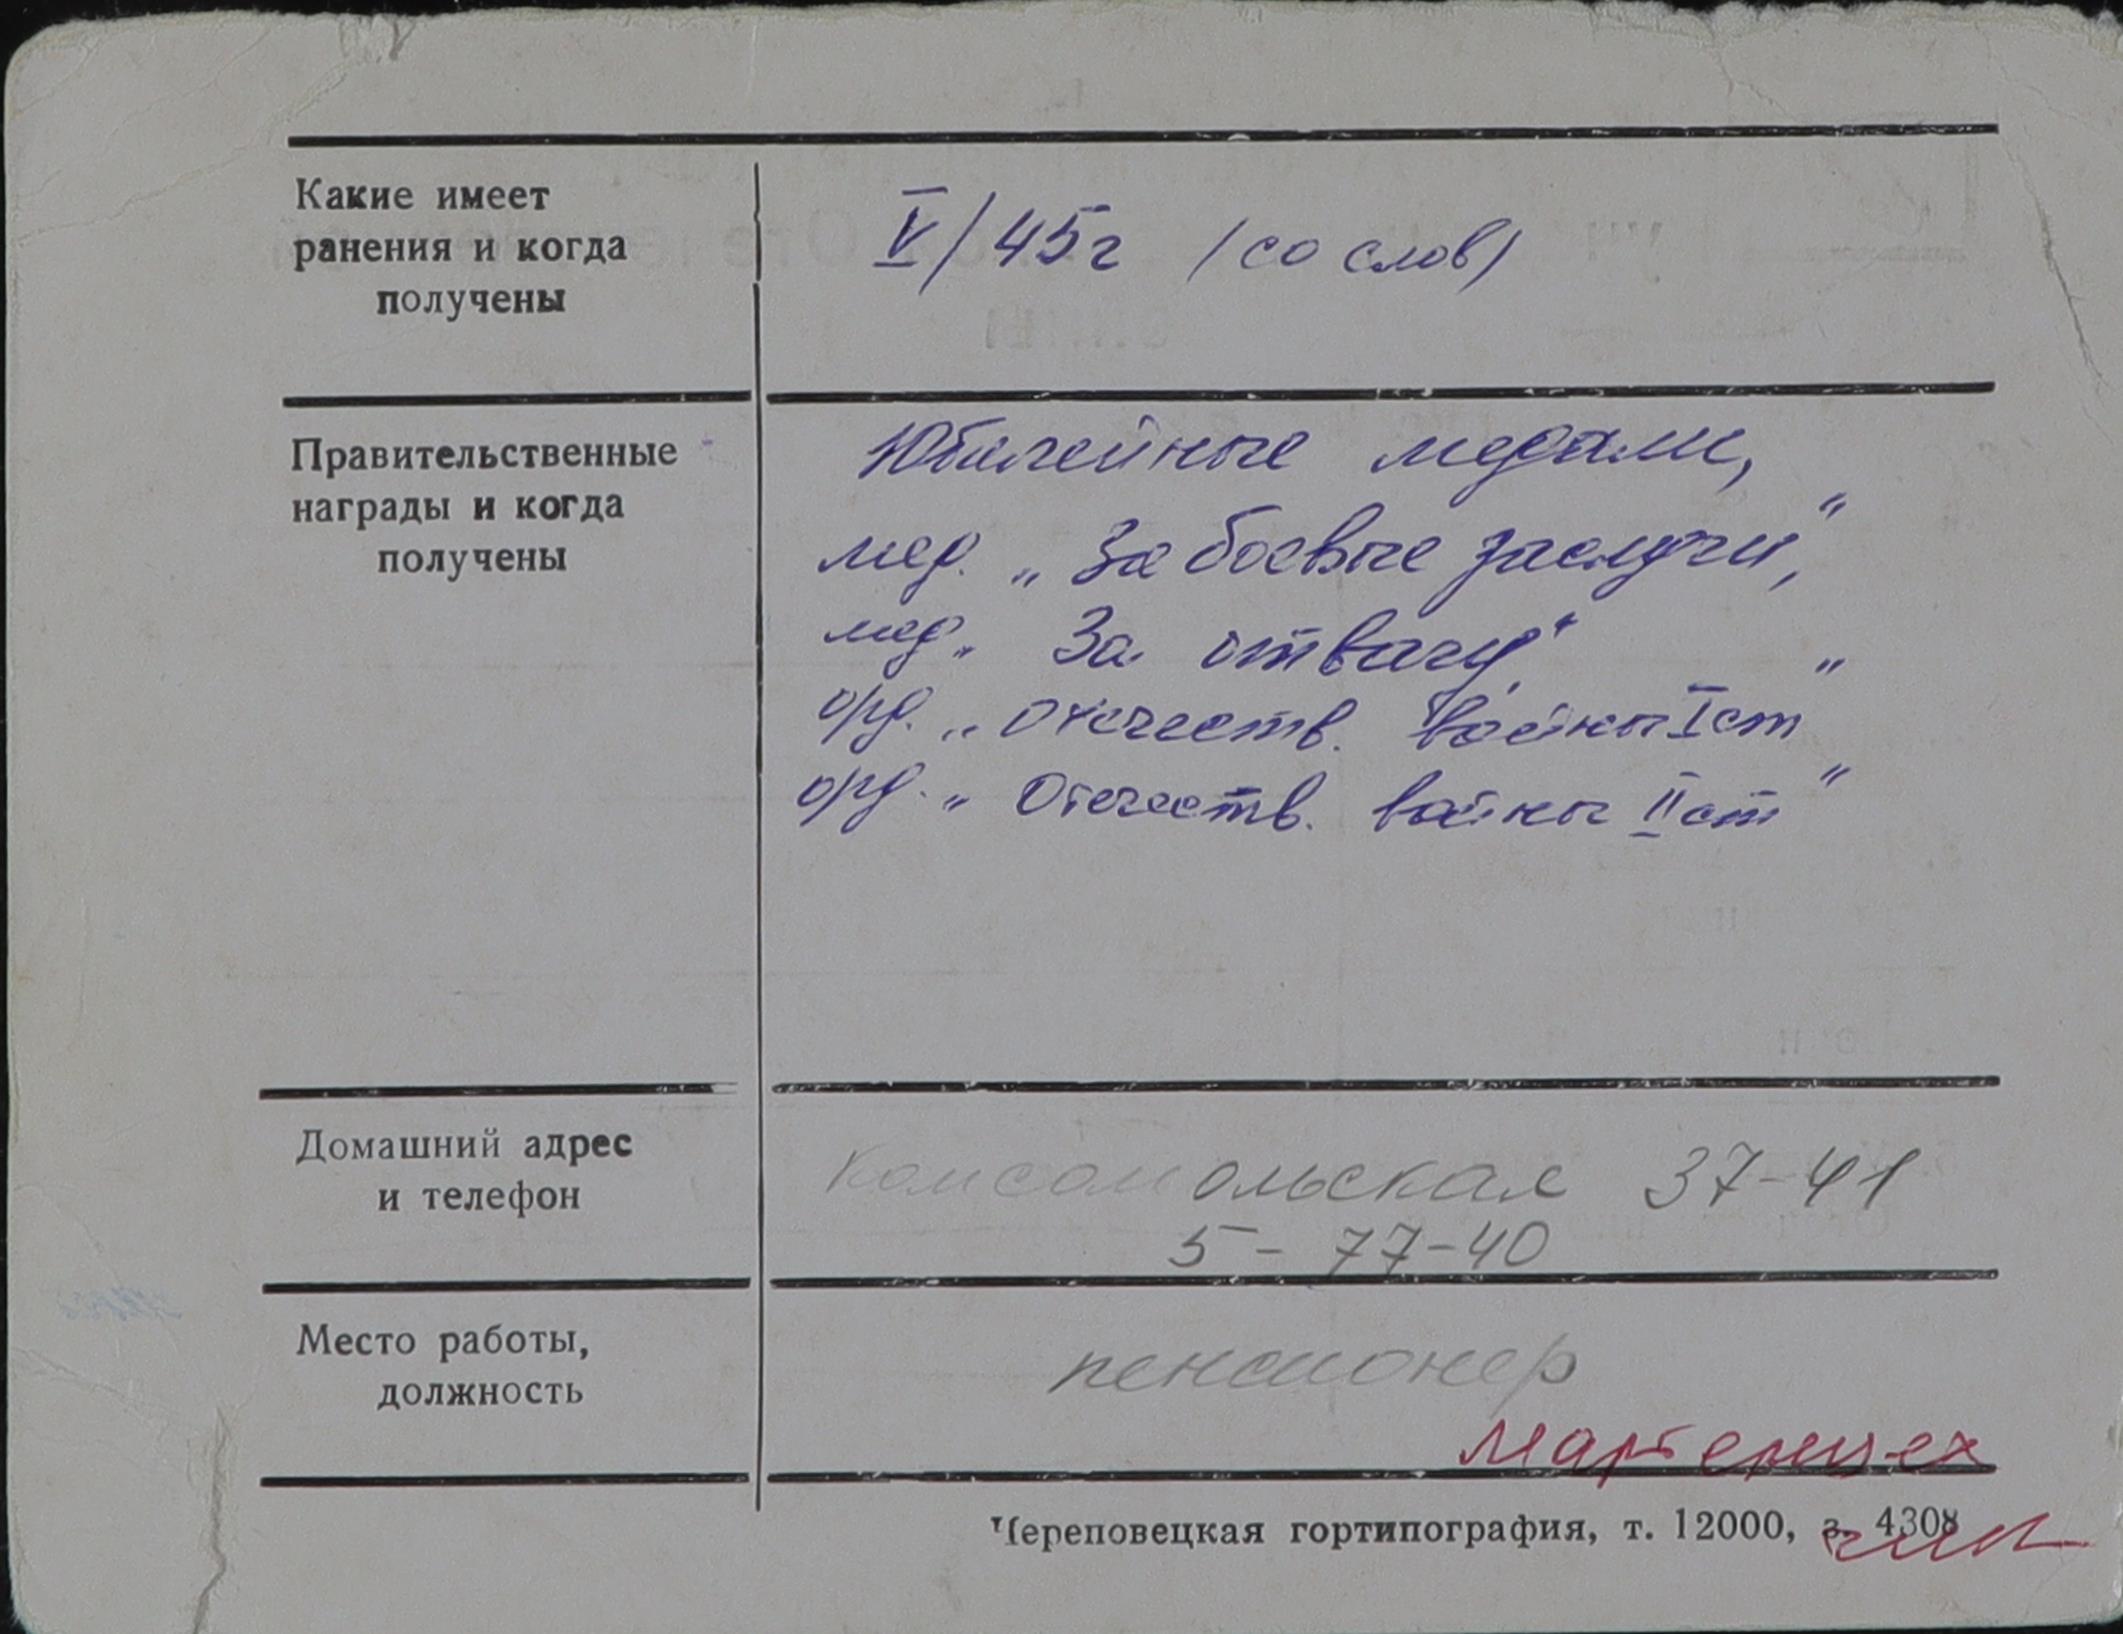 Какие имеет
ранения и когда
получены
V/45г (со слов)
Правительственные
награды и когда
получены
Юбилейные медали,
мед. „За боевые заслуги",
мед. „За отвагу"
орд. „Отечеств. войны I ст"
орд. „Отечеств. войны II ст"
Домашний адрес
и телефон
Комсомольская 37-41
5-77-40
Место работы,
должность
пенсионер
мартенцех
Череповецкая гортипография, т. 12000, з. 4308